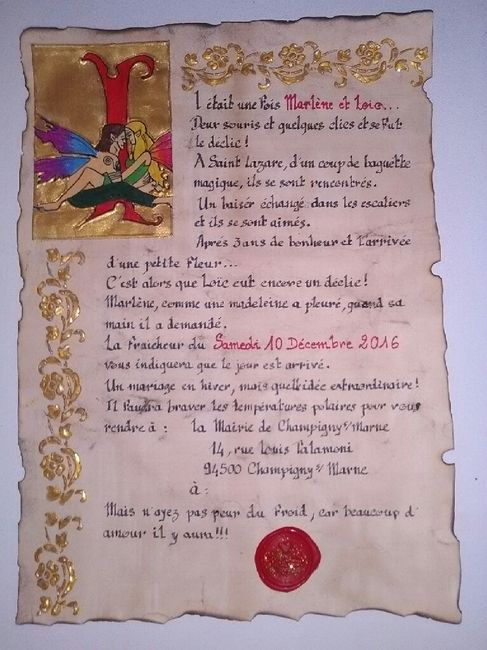 Il était une fois Marlène et Loïc...
Deux souris et quelques clics et se fut
le déclic !
À Saint Lazare, d'un coup de baguette
magique, ils se sont rencontrés.
Un baiser échangé dans les escaliers
et ils se sont aimés.
Après 3 ans de bonheur et l'arrivée
d'une petite fleur...
C'est alors que Loïc eut encore un déclic !
Marlène, comme une madeleine a pleuré, quand sa
main il a demandé.
La fraîcheur du Samedi 10 Décembre 2016
vous indiquera que le jour est arrivé.
Un mariage en hiver, mais quelle idée extraordinaire !
Il faudra braver les températures polaires pour vous
rendre à : La Mairie de Champigny s/ Marne
14, rue Louis Talamoni
94500 Champigny s/ Marne
à :
Mais n'ayez pas peur du froid, car beaucoup d'
amour il y aura !!!